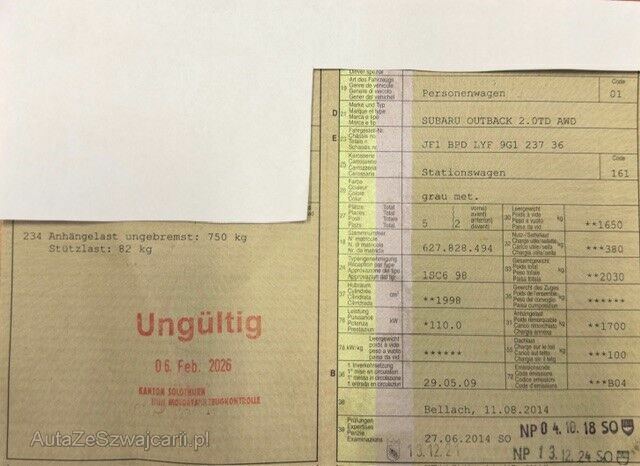 Code
19 Art des Fahrzeugs
Genre de véhicule
Genere di veicolo
Gener dal vehichel
Personenwagen
01
D 21 Marke und Typ
Marque et type
Marca e tipo
Marca e tip
SUBARU OUTBACK 2.0TD AWD
E 23 Fahrgestell-Nr.
Châssis no
Telaio n.
Schassis nr.
JF1 BPD LYF 9G1 237 36
Code
25 Karosserie
Carrosserie
Carrozzeria
Carrossaria
Stationswagen
161
26 Farbe
Couleur
Colore
Colur
grau met.
27 Plätze Total
Places Total
Posti Totale
Plazs Total
5 (2 vorne)
avant)
anteriori)
davant)
30 Leergewicht
Poids à vide
Peso a vuoto
Paisa da vid
kg
**1650
18 Stammnummer
N° matricule
N. matricola
Nr. da matricla
627.828.494
32 Nutz-/Sattellast
kg
***380
24 Typengenehmigung
Réception par type
Approvazione del tipo
Approvaziun dal tip
1SC6 98
33 Gesamtgewicht
Poids total
Peso totale
Paisa totala
kg
**2030
37 Hubraum
Cylindrée
Cilindrata
Cilindrada
cm³
**1998
35 Gewicht des Zuges
Poids de l'ensemble
******
76 Leistung
Puissance
Potenza
Prestaziun
kW
*110.0
31 Anhängelast
kg
**1700
78 kW/kg Leergewicht
poids à vide
peso a vuoto
paisa da vid
******
55 Dachlast
kg
***100
B 36 1. Inverkehrsetzung
1re mise en circulation
1a messa in circolazione
1. entrada en circulaziun
29.05.09
72 Emissionscode
Code émissions
Codice emissioni
***B04
38
Bellach, 11.08.2014
39 Prüfungen
Expertises
Perizie
Examinaziuns
27.06.2014 SO
NP 0 4. 10. 18 SO
13.12.21
NP 1 3. 12. 24 SO
234 Anhängelast ungebremst: 750 kg
Stützlast: 82 kg
Ungültig
06. Feb. 2026
KANTON SOLOTHURN
MOTORFAHRZEUGKONTROLLE
AutaZeSzwajcarii.pl